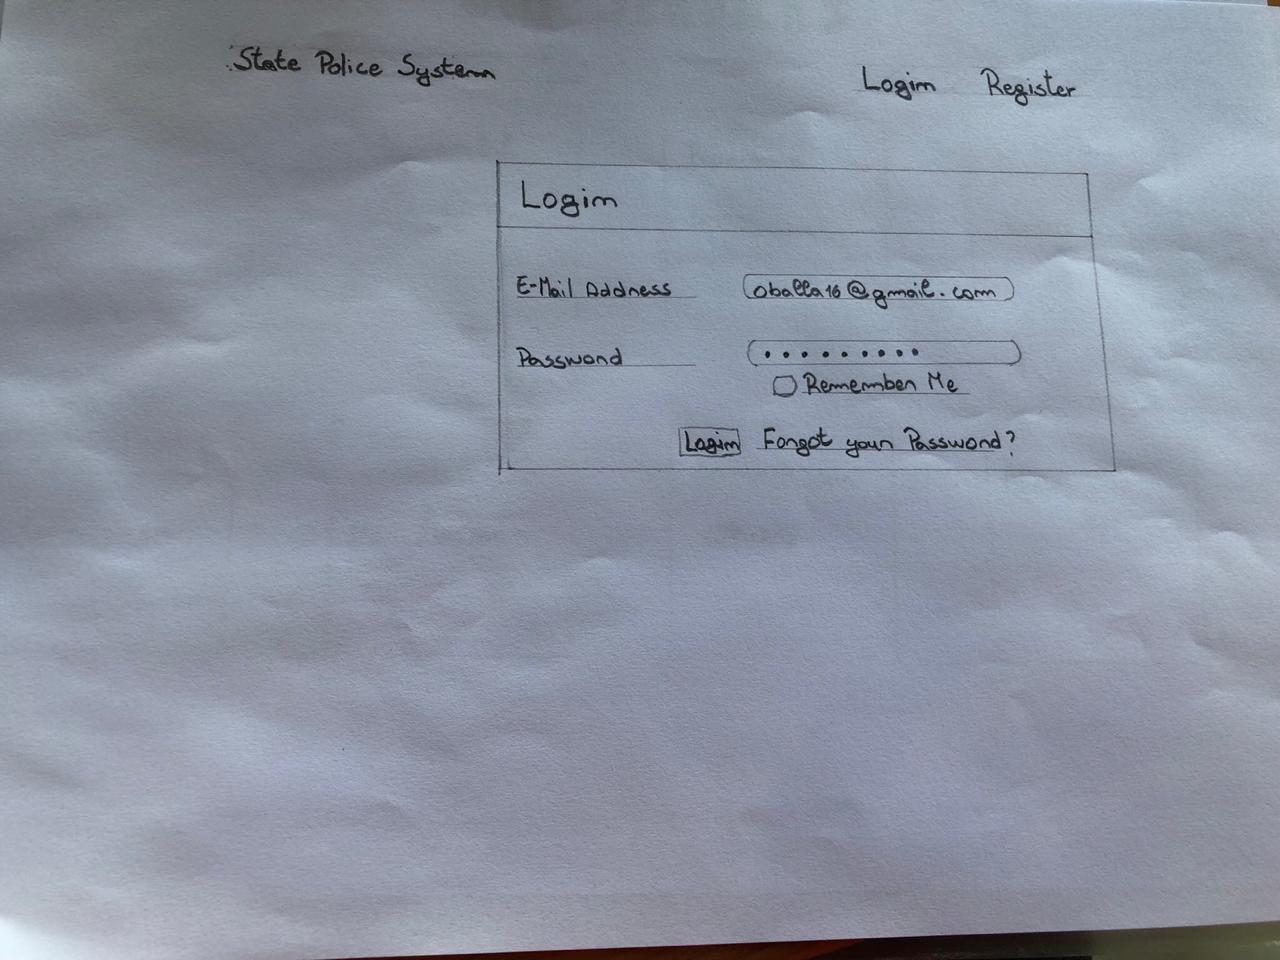 State Police System
Login Register
Login
E-Mail Address oballa16@gmail.com
Password •••••••••
Remember Me
Login Forgot your Password?